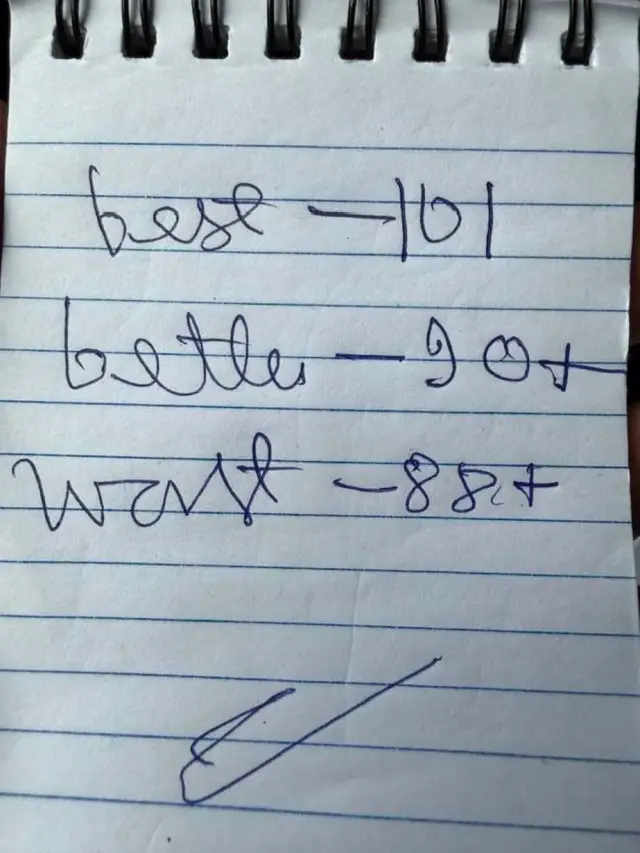 best - 101
better - 90+
worst - 88+